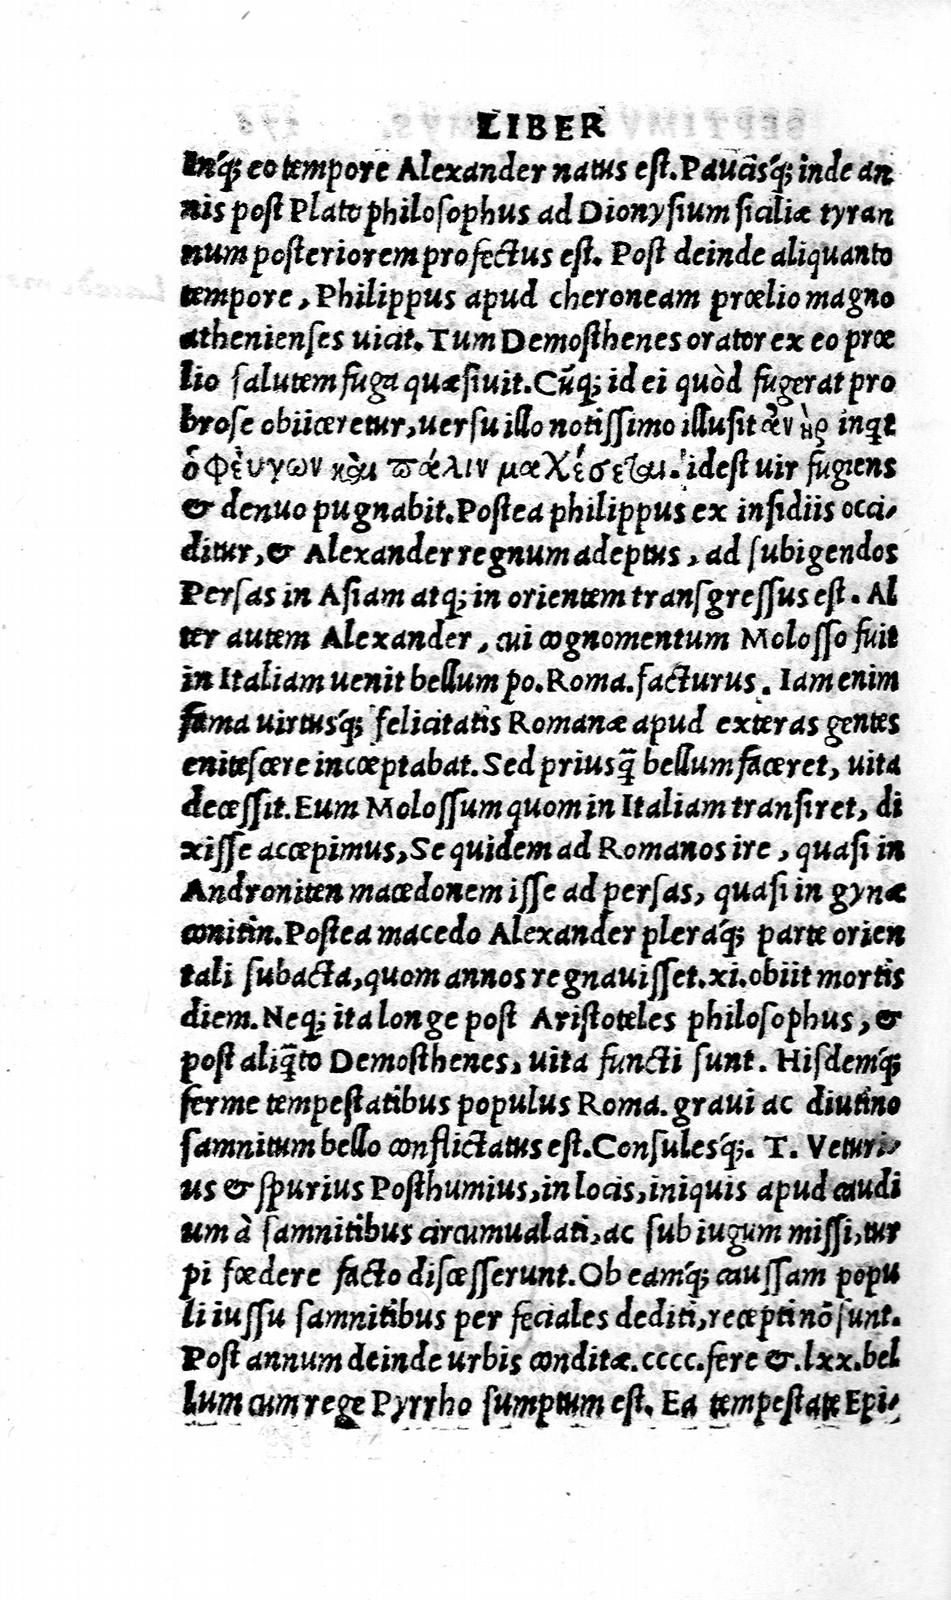 LIBER
Inq́; eo tempore Alexander natus est. Paucisq́; inde an
nis post Plato philosophus ad Dionysium siciliæ tyran
num posteriorem profectus est. Post deinde aliquanto
tempore, Philippus apud cheroneam prœlio magno
athenienses uicit. Tum Demosthenes orator ex eo prœ
lio salutem fuga quæsiuit. Cūq; id ei quòd fugerat pro
brose obiiceretur, uersu illo notissimo illusit ἀν ὴρ inqt
ὁ φεύγων καὶ πάλιν μαχέσεται. idest uir fugiens
& denuo pugnabit. Postea philippus ex insidiis occi-
ditur, & Alexander regnum adeptus, ad subigendos
Persas in Asiam atq; in orientem transgressus est. Al
ter autem Alexander, cui cognomentum Molosso fuit
in Italiam uenit bellum po. Roma. facturus. Iam enim
fama uirtusq́; felicitatis Romanæ apud exteras gentes
enitescere incœptabat. Sed priusq̄ bellum faceret, uita
decessit. Eum Molossum quom in Italiam transiret, di
xisse accepimus, Se quidem ad Romanos ire, quasi in
Androniten macedonem isse ad persas, quasi in gynæ
conitin. Postea macedo Alexander pleraq́; parte orien
tali subacta, quom annos regnauisset. xi. obiit mortis
diem. Neq; ita longe post Aristoteles philosophus, &
post aliq̄to Demosthenes, uita functi sunt. Hisdemq́;
ferme tempestatibus populus Roma. graui ac diutino
samnitum bello conflictatus est. Consulesq́;. T. Veturi-
us & spurius Posthumius, in locis, iniquis apud caudi
um à samnitibus circumualati, ac sub iugum missi, tur
pi fœdere facto discesserunt. Ob eamq́; caussam popu
li iussu samnitibus per feciales dediti, recepti nō sunt.
Post annum deinde urbis conditæ. cccc. fere &. lxx. bel
lum cum rege Pyrrho sumptum est. Ea tempestate Epi-